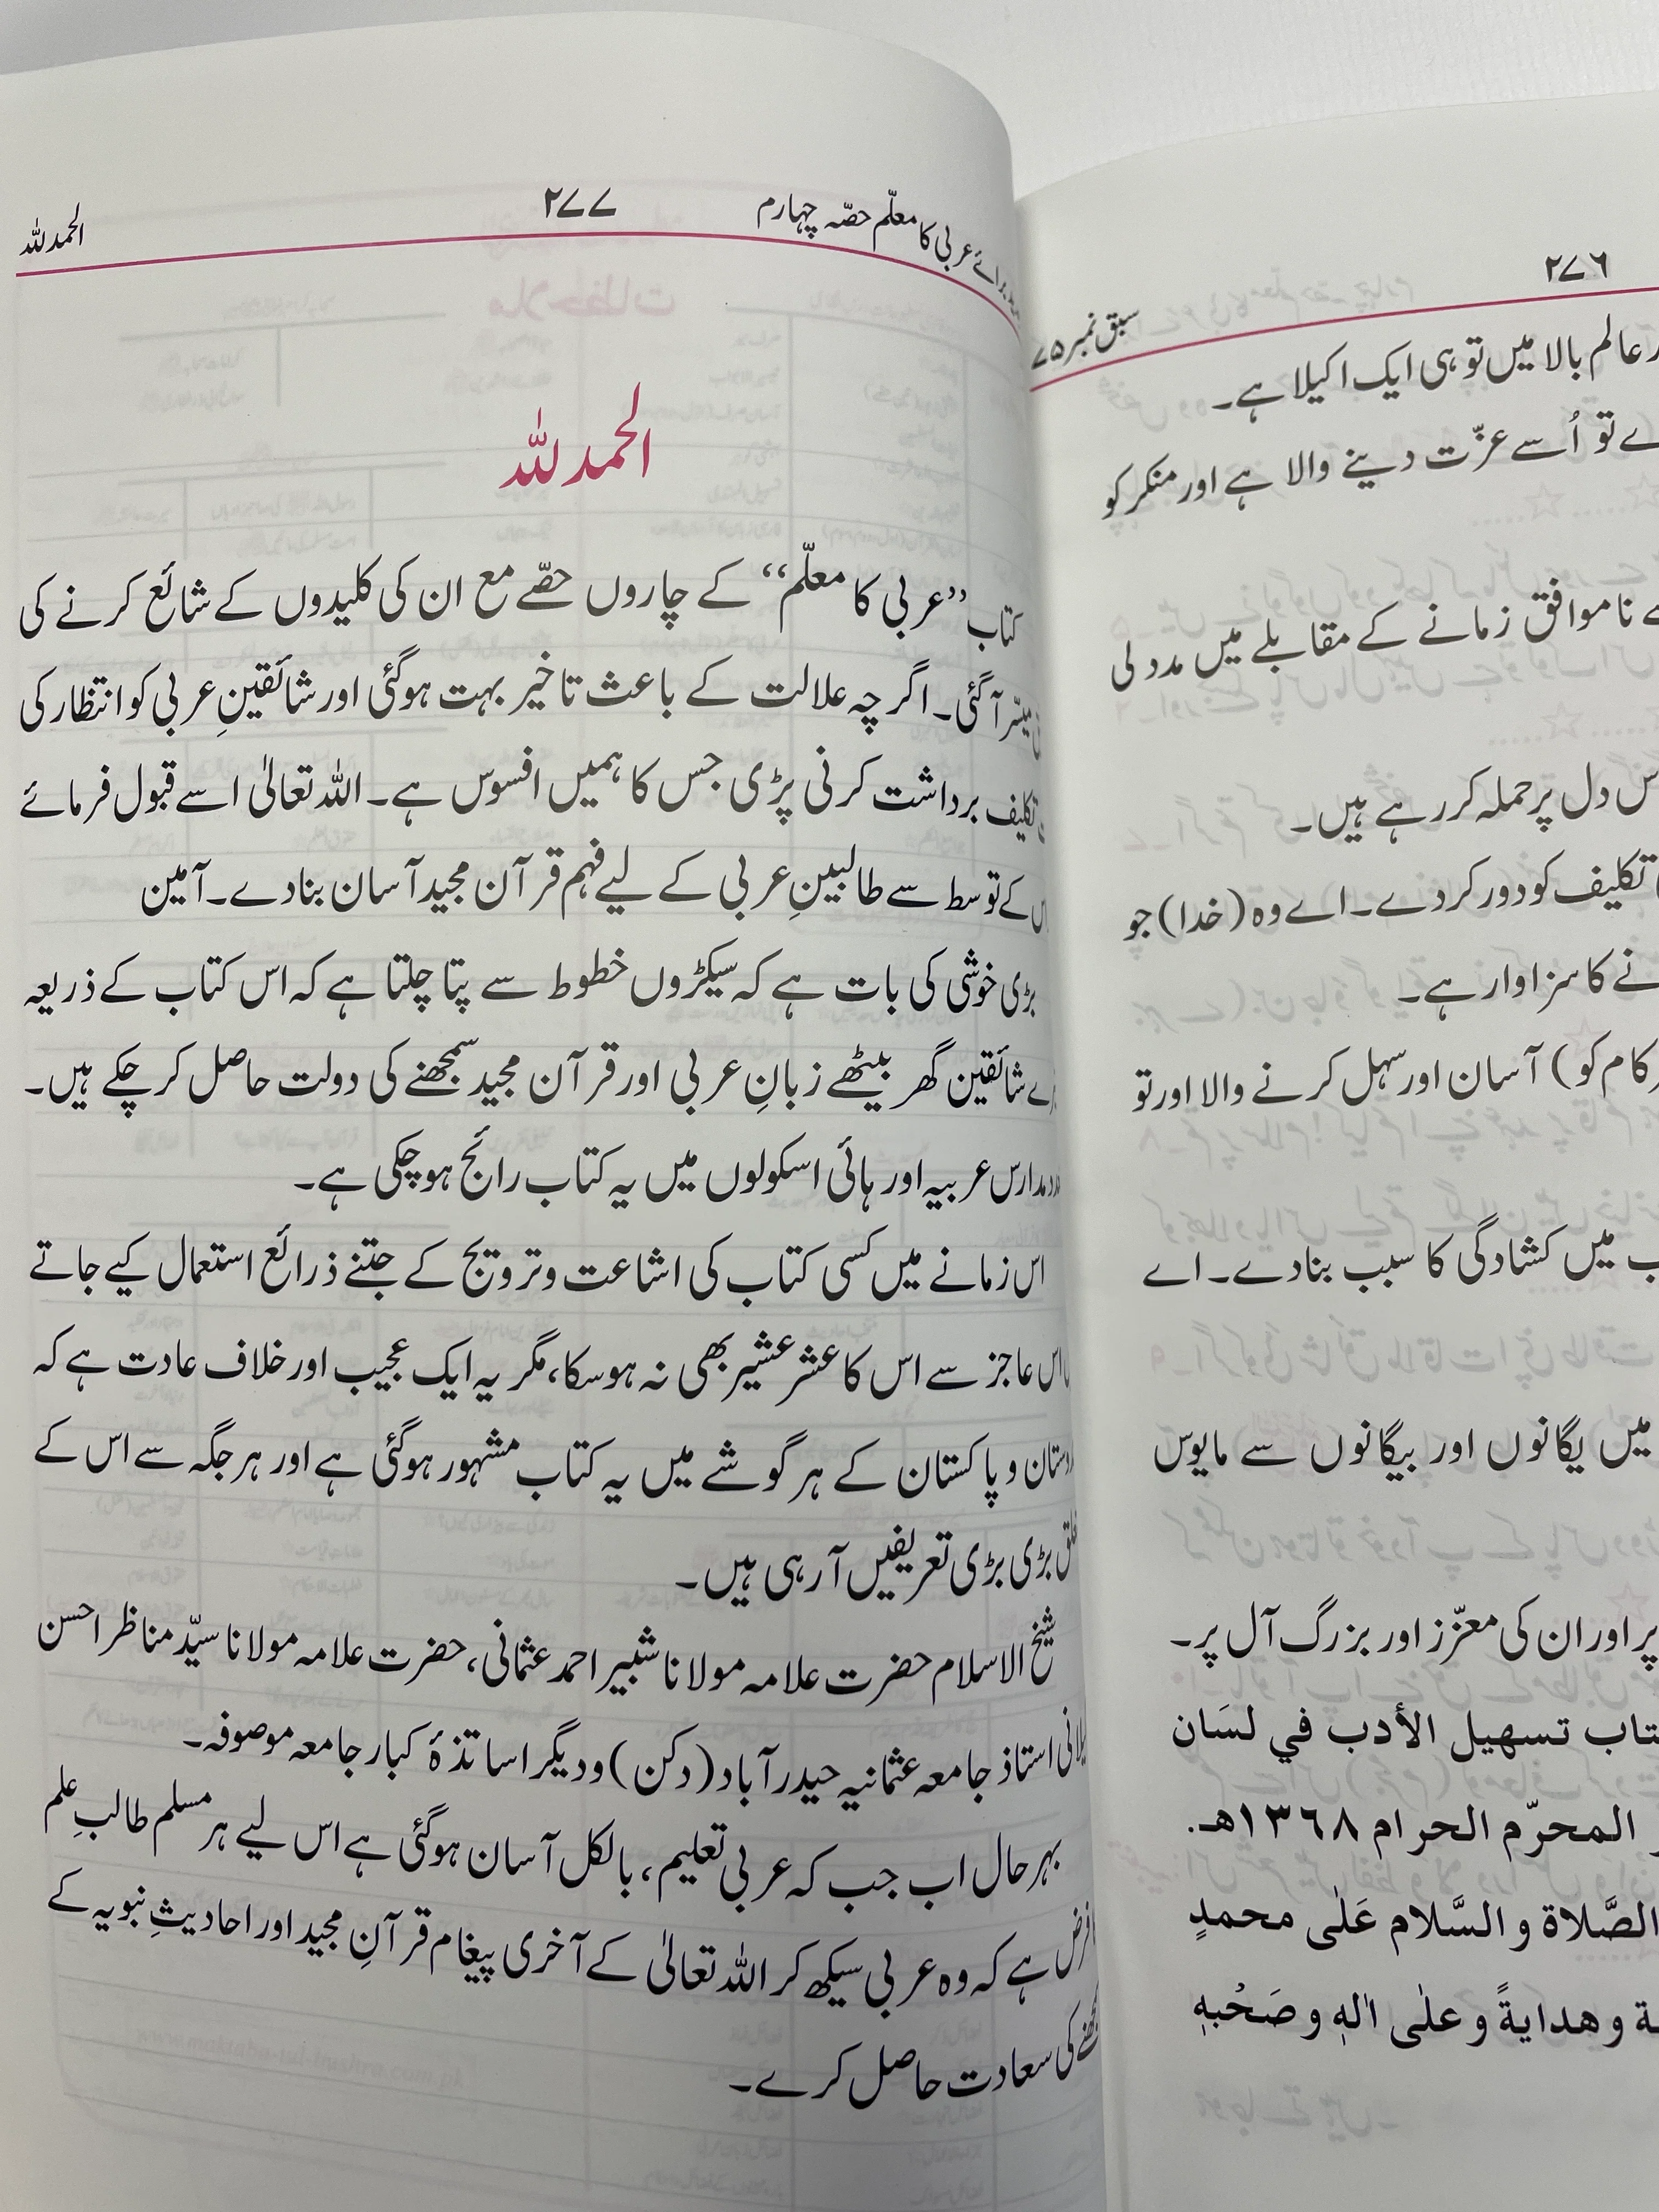 ۲۷۶
سبق نمبر ۷۵
عالم بالا میں تو ہی ایک اکیلا ہے۔
تو اُسے عزّت دینے والا ہے اور منکر کو
ناموافق زمانے کے مقابلے میں مدد لی
دل پر حملہ کر رہے ہیں۔
تکلیف کو دور کردے۔ اے وہ (خدا) جو
کا سزاوار ہے۔
کام کو) آسان اور سہل کرنے والا اور تو
میں کشادگی کا سبب بنادے۔ اے
میں یگانوں اور بیگانوں سے مایوس
پر اور ان کی معزّز اور بزرگ آل پر۔
تسهيل الأدب في لسَان
المحرّم الحرام ١٣٦٨هـ.
الصَّلاة و السَّلام عَلٰى محمدٍ
و هدايةً و علٰى اٰلهٖ و صَحْبهٖ
عربی کا معلّم حصّہ چہارم
۲۷۷
الحمد للہ
الحمد للہ
کتاب ”عربی کا معلّم“ کے چاروں حصّے مع ان کی کلیدوں کے شائع کرنے کی
میسّر آگئی۔ اگر چہ علالت کے باعث تاخیر بہت ہوگئی اور شائقینِ عربی کو انتظار کی
تکلیف برداشت کرنی پڑی جس کا ہمیں افسوس ہے۔ اللہ تعالٰی اسے قبول فرمائے
کے توسط سے طالبینِ عربی کے لیے فہم قرآن مجید آسان بنادے۔ آمین
بڑی خوشی کی بات ہے کہ سیکڑوں خطوط سے پتا چلتا ہے کہ اس کتاب کے ذریعہ
شائقین گھر بیٹھے زبانِ عربی اور قرآن مجید سمجھنے کی دولت حاصل کر چکے ہیں۔
مدارس عربیہ اور ہائی اسکولوں میں یہ کتاب رائج ہوچکی ہے۔
اس زمانے میں کسی کتاب کی اشاعت و ترویج کے جتنے ذرائع استعمال کیے جاتے
اس عاجز سے اس کا عشر عشیر بھی نہ ہوسکا، مگر یہ ایک عجیب اور خلاف عادت ہے کہ
و پاکستان کے ہر گوشے میں یہ کتاب مشہور ہوگئی ہے اور ہر جگہ سے اس کے
بڑی بڑی تعریفیں آرہی ہیں۔
شیخ الاسلام حضرت علامہ مولانا شبیر احمد عثمانی، حضرت علامہ مولانا سیّد مناظر احسن
استاذ جامعہ عثمانیہ حیدرآباد (دکن) و دیگر اساتذۂ کبار جامعہ موصوفہ۔
بہرحال اب جب کہ عربی تعلیم، بالکل آسان ہوگئی ہے اس لیے ہر مسلم طالبِ علم
فرض ہے کہ وہ عربی سیکھ کر اللہ تعالٰی کے آخری پیغام قرآنِ مجید اور احادیثِ نبویہ کے
کی سعادت حاصل کرے۔